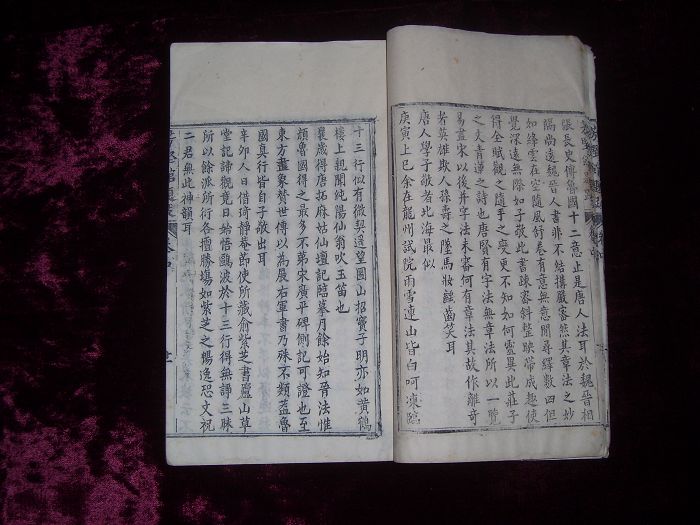 張長史傳魯國十二意止是唐人法耳於魏晉相
隔尚遠魏晉人書非不結搆嚴審然其章法之妙
如絳雲在空隨風舒卷有意無意間尋繹數四但
覺深遠無際如子敬此書疎審斜整映帶成趣使
得全賦觀之隨手之變更不知如何靈異此莊子
之文青蓮之詩也唐賢有字法無章法所以一覽
易盡宋以後并字法未審何有章法其故作離奇
者英雄欺人孫壽之墮馬妝齲齒笑耳
唐人學子敬者北海最似
庚寅上巳余在龍州試院雨雪連山皆白呵凍臨
十三行似有微契遥望圌山招竇子明亦如黃鶴
樓上親聞純陽仙翁吹玉笛也
曩歲得唐拓麻姑仙壇記臨摹月餘始知晉法惟
顏魯國得之最多不第宋廣平碑側記可證也至
東方畫象贊世傳以為展右軍書乃殊不類葢魯
國真行皆自子敬出耳
辛卯人日借琦靜菴節使所藏俞紫芝書廬山草
堂記諦觀竟日始悟鷗波於十三行得無諍三昧
所以餘派所衍各擅勝塲如紫芝之暢逸恐文祝
二君無此神韻耳